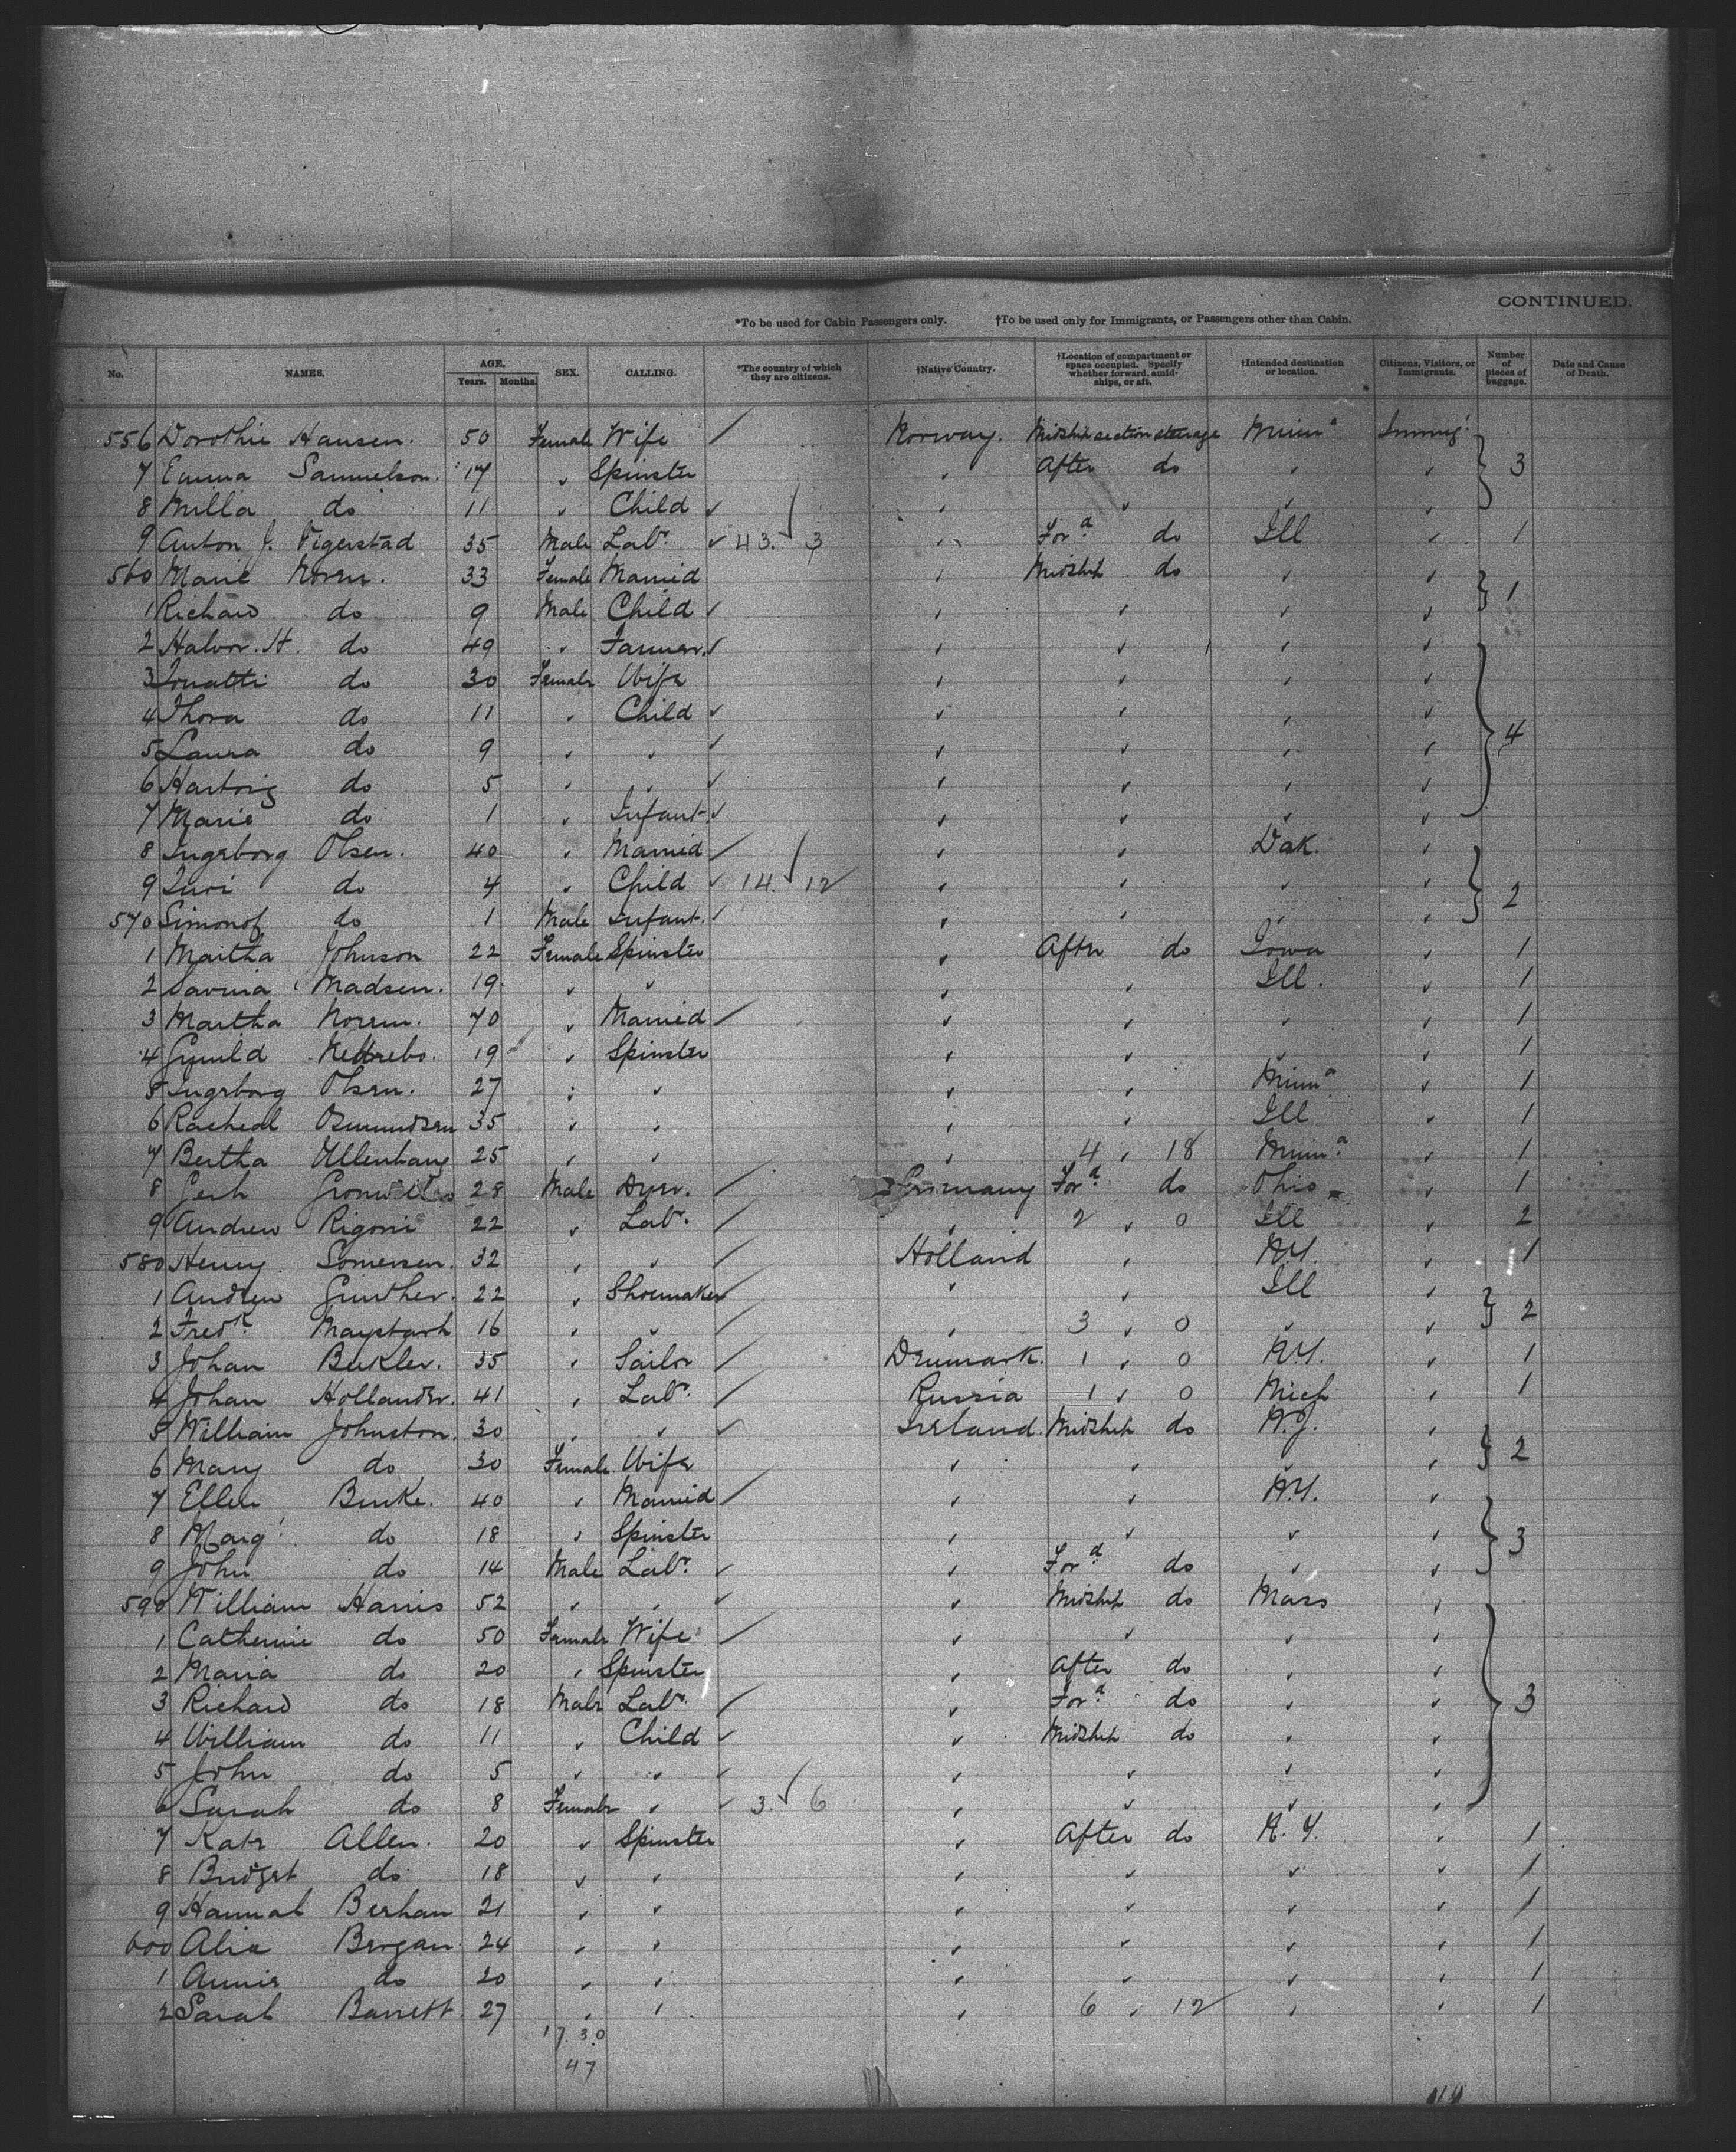 CONTINUED.
*To be used for Cabin Passengers only. †To be used only for Immigrants, or Passengers other than Cabin.
No. NAMES. AGE. Years. Months. SEX. CALLING. *The country of which they are citizens. †Native Country. †Location of compartment or space occupied. Specify whether forward, amidships, or aft. †Intended destination or location. Citizens, Visitors, or Immigrants. Number of pieces of baggage. Date and Cause of Death.
556 Dorothie Hansen. 50 Female Wife Norway. Midship section steerage Minnᵃ Immigᵗ
7 Emma Samuelson. 17 " Spinster " After do " " 3
8 Milla do 11 " Child " " " "
9 Anton J. Vigerstad 35 Male Labʳ 43. 3 " Forᵈ do Ill " 1
560 Marie Noren. 33 Female Married " Midship do " "
1 Richard do 9 Male Child " " " " 1
2 Halvor. H. do 49 " Farmer " " " "
3 do 30 Female Wife " " " "
4 Thora do 11 " Child " " " "
5 Laura do 9 " " " " " " 4
6 Hartvig do 5 " " " " " "
7 Marie do 1 " Infant " " " "
8 Ingeborg Olsen. 40 " Married " " Dak. "
9 do 4 " Child 14. 12 " " " " 2
570 do 1 Male Infant. " " " "
1 Martha Johnson 22 Female Spinster " After do Iowa " 1
2 Savina Madsen. 19 " " " " Ill. " 1
3 Martha Noren. 70 " Married " " " " 1
4 19 " Spinster " " " " 1
5 Ingeborg Olsen. 27 " " " " Minnᵃ " 1
6 Racheal Osmundsen 35 " " " " Ill " 1
7 Bertha 25 " " " 4 " 18 Minnᵃ " 1
8 28 Male Dyer. Germany Forᵈ do Ohio " 1
9 Andrew Rigoni 22 " Labʳ. " 2 " 0 Ill " 2
580 Henry Somersen. 32 " " Holland " N.Y. " 1
1 Andrew Gunther. 22 " Shoemaker " " Ill "
2 Fredᵏ 16 " " " 3 " 0 " " 2
3 Johan 35 " Sailor Denmark. 1 " 0 N.Y. " 1
4 Johan Hollander. 41 " Labʳ. Russia 1 " 0 Mich " 1
5 William Johnston. 30 " " Ireland. Midship do N.J. "
6 Mary do 30 Female Wife " " " " 2
7 Ellen Burke. 40 " Married " " N.Y. "
8 Margᵗ do 18 " Spinster " " " " 3
9 John do 14 Male Labʳ. " Forᵈ do " "
590 William Harris 52 " " " Midship do Mass "
1 Catherine do 50 Female Wife " " " "
2 Maria do 20 " Spinster " After do " "
3 Richard do 18 Male Labʳ. " Forᵈ do " " 3
4 William do 11 " Child " Midship do " "
5 John do 5 " " " " " "
6 Sarah do 8 Female " 3. 6 " " " "
7 Kate Allen. 20 " Spinster " After do N.Y. " 1
8 Bridget do 18 " " " " " " 1
9 Hannah 21 " " " " " " 1
600 Bergan 24 " " " " " " 1
1 Annie do 20 " " " " " " 1
2 Sarah Barrett. 27 " " " 6 " 12 " " 1
17. 30
47